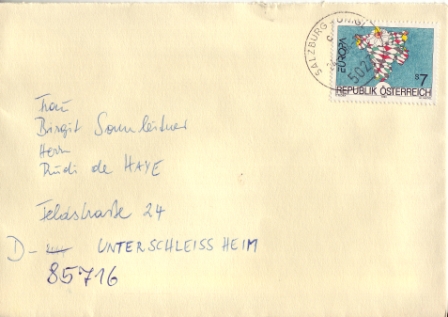 SALZBURG
5020
EUROPA
S7
REPUBLIK ÖSTERREICH
Frau
Birgit Sonnleitner
Herr
Rudi de HAYE
Feldstraße 24
D- UNTERSCHLEISSHEIM
85716